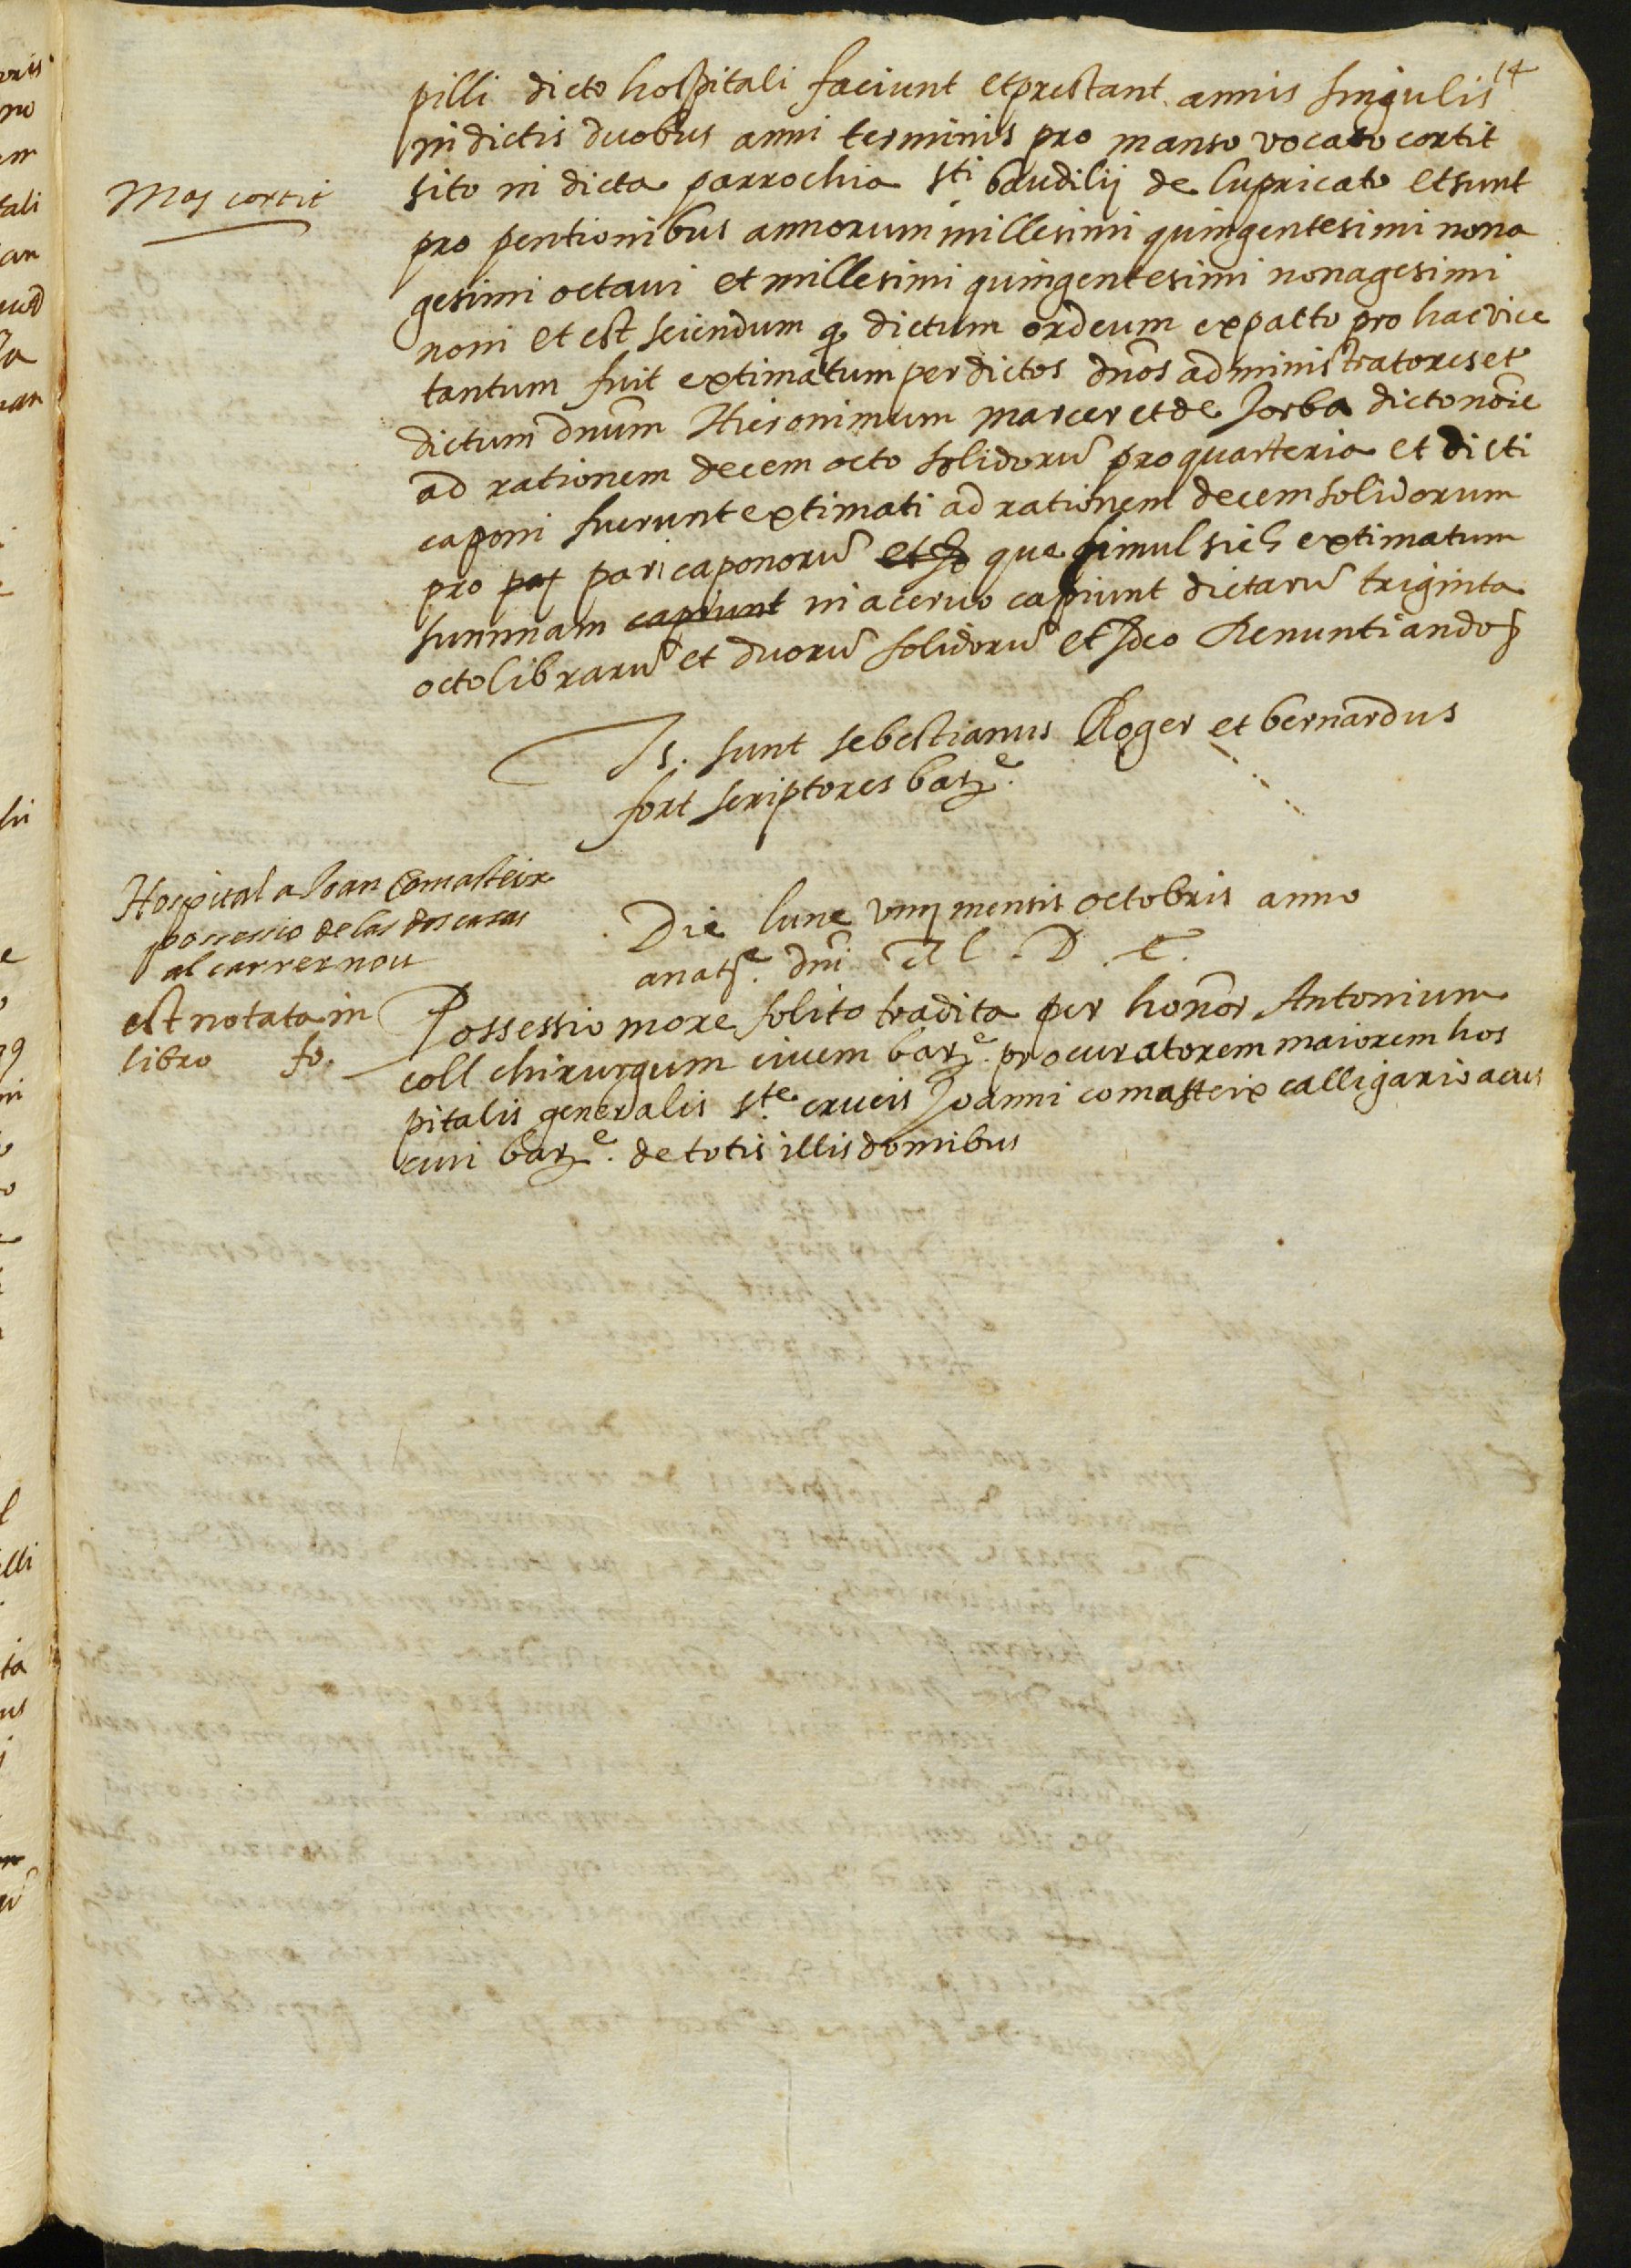 14
pilli dicto hospitali faciunt et prestant annis singulis
in dictis duobus anni terminis pro manso vocato cortit
Mas cortit
sito in dicta parrochia sti baudilij de lupricato et sunt
pro pentionibus annorum millesimi quingentesimi nona
gesimi octaui et millesimi quingentesimi nonagesimi
noni et est sciendum q dictum ordeum ex pacto pro hac vice
tantum fuit extimatum per dictos dnos administratores et
dictum dnum Hieronimum marcer et de Jorba dicto noie
ad rationem decem octo solidoru pro quarteria et dicti
caponi fuerunt extimati ad rationem decem solidorum
pro par pari caponoru et Jo que simul sich extimatum
summam capiunt in aceruo capiunt dictaru triginta
octo libraru et duoru solidoru et Jdeo Renuntiando &
Ts. sunt sebestianus Roger et bernardus
fort scriptores barne.
Hospital a Joan Comasteix
possessio de las dos casas
al carrer nou
est notata in
libro fo.
Die lune viiij mensis octobris anno
a nate. dni M D C.
Possessio more solito tradita per honor Antonium
coll chirurgum ciuem barne. procuratorem maiorem hos
pitalis generalis ste crucis Joanni comasteix calligario ac ciui
ciui barne. de totis illis domibus